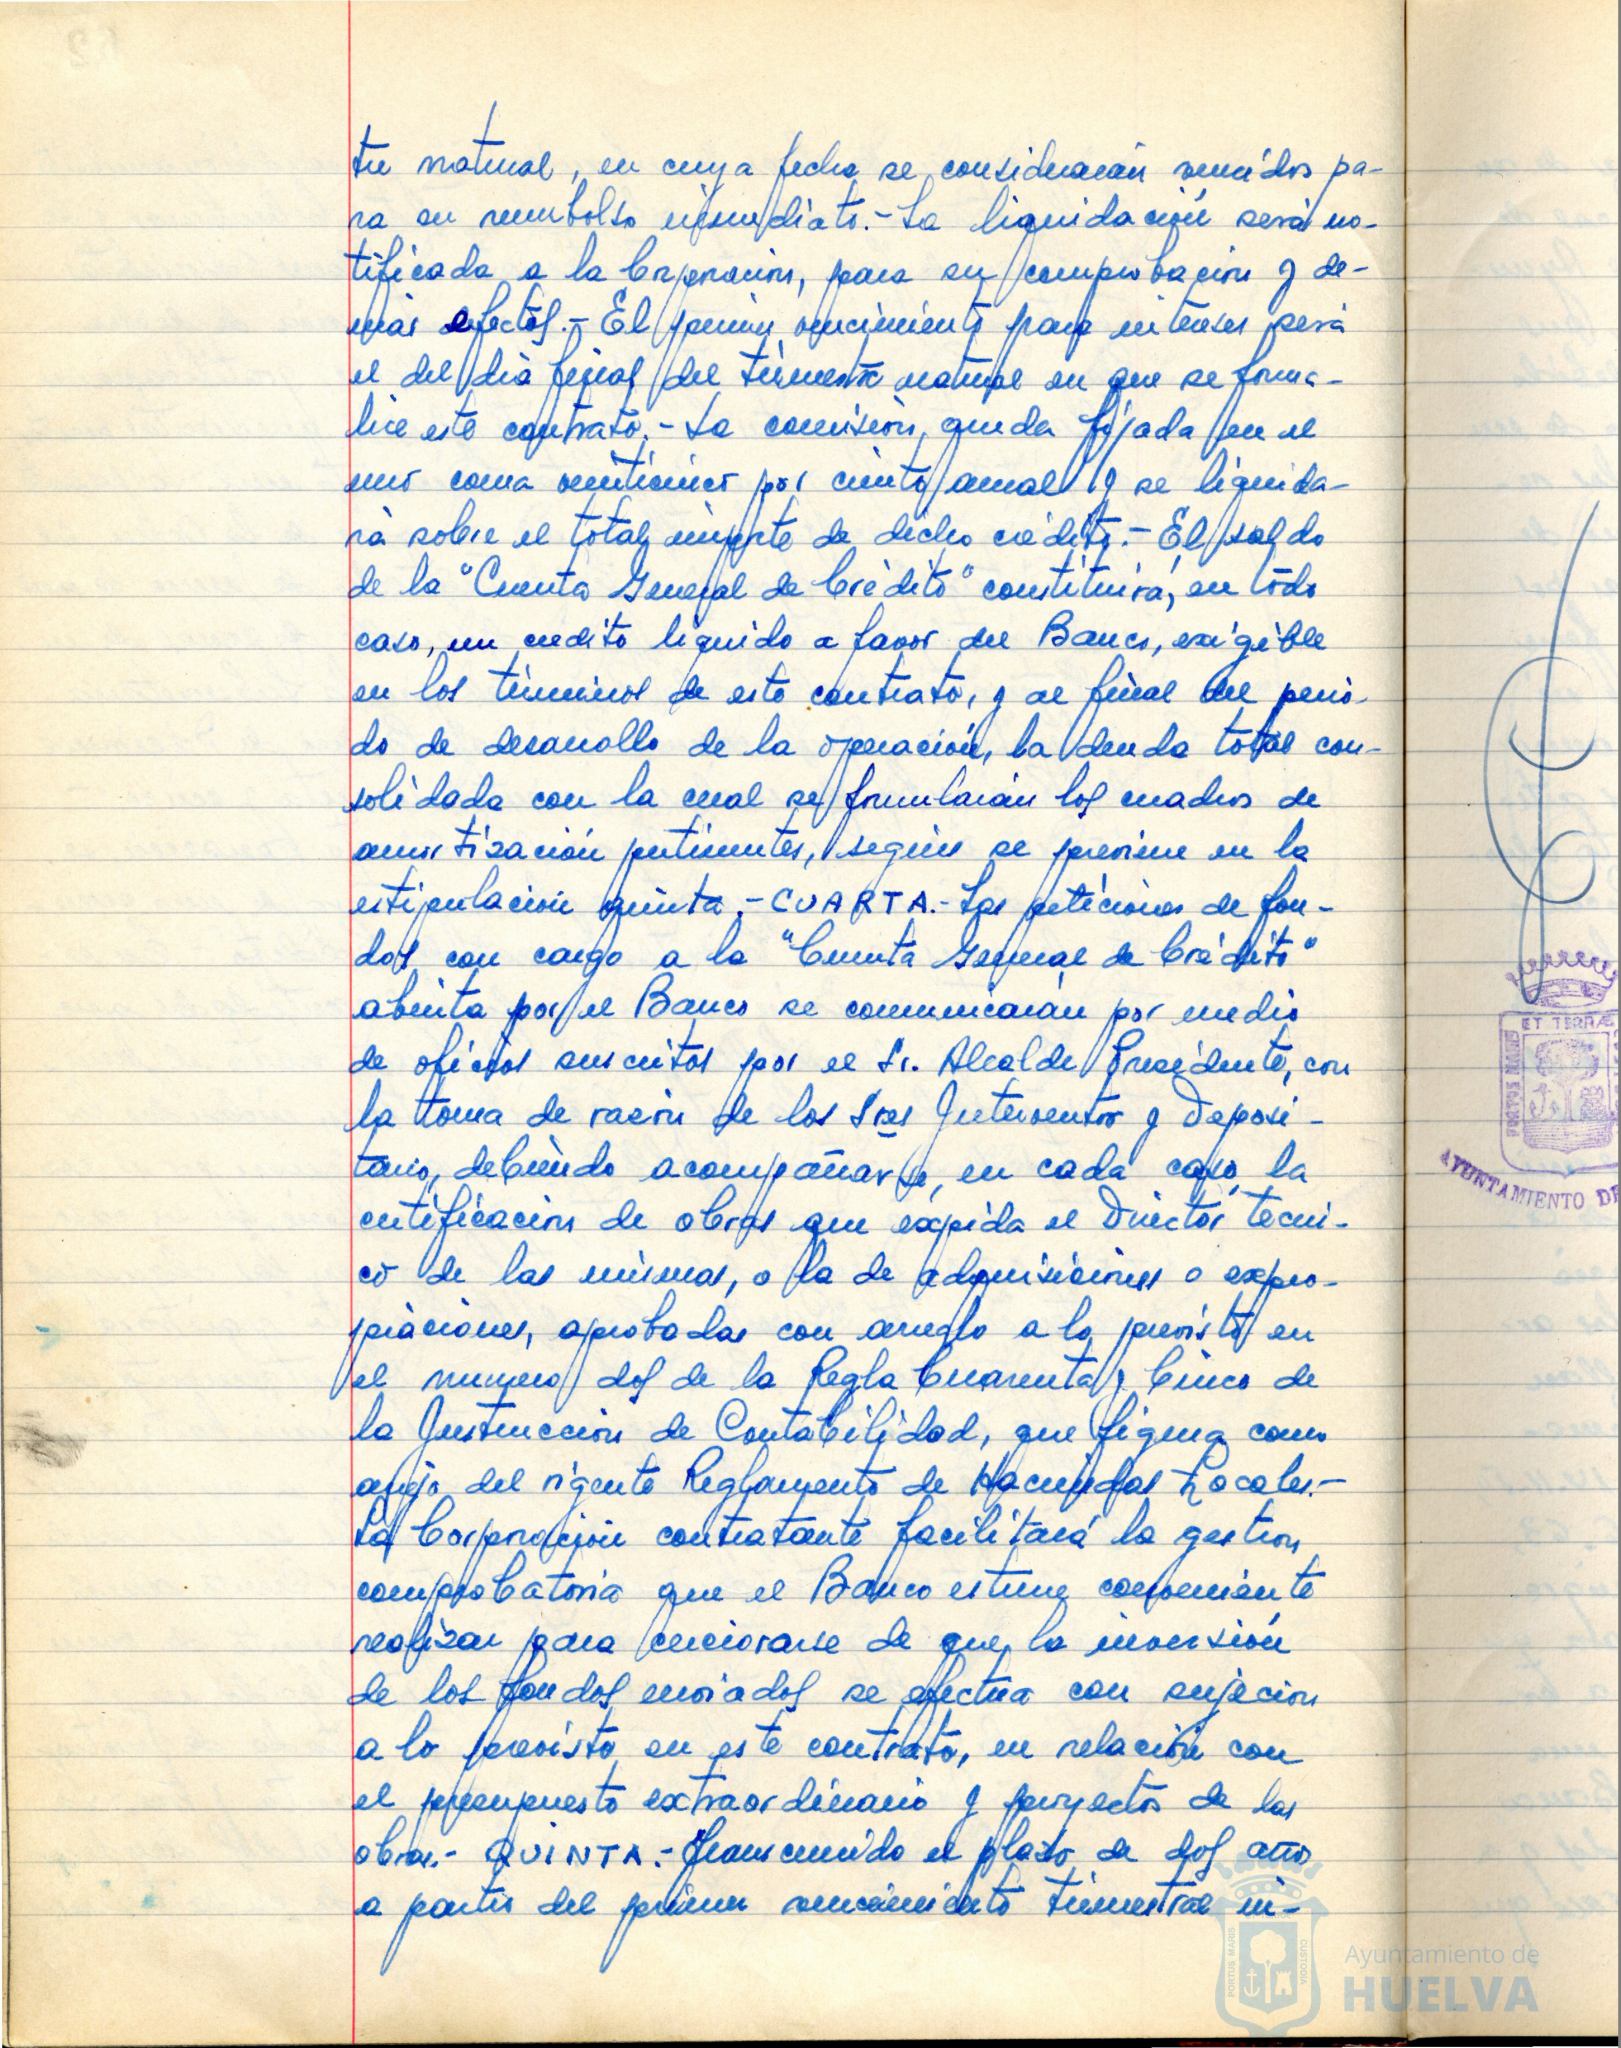 tre natural, en cuya fecha se considerarán vencidos pa-
ra su reembolso inmediato.- La liquidación será no-
tificada a la Corporación, para su comprobación y de-
más efectos.- El primer vencimiento para intereses será
el del día final del trimestre natural en que se forma-
lice este contrato.- La comisión, queda fijada en el
uno coma veinticinco por ciento anual y se liquida-
rá sobre el total importe de dicho crédito.- El saldo
de la "Cuenta General de Crédito" constituirá, en todo
caso, un credito líquido a favor del Banco, exigible
en los términos de este contrato, y al final del perio-
do de desarrollo de la operación, la deuda total con-
solidada con la cual se formularán los cuadros de
amortización pertinentes, según se previene en la
estipulación quinta.- CUARTA.- Las peticiones de fon-
dos con cargo a la "Cuenta General de Crédito"
abierta por el Banco se comunicarán por medio
de oficios suscritos por el Sr. Alcalde Presidente, con
la toma de razón de los Sres Interventor y Deposi-
tario, debiendo acompañarse, en cada caso, la
certificación de obras que expida el Director técni-
co de las mismas, o la de adquisiciones o expro-
piaciones, aprobadas con arreglo a lo previsto en
el numero dos de la Regla Cuarenta y Cinco de
la Instrucción de Contabilidad, que figura como
anejo del vigente Reglamento de Haciendas Locales.-
La Corporación contratante facilitará la gestion
comprobatoria que el Banco estime conveniente
realizar para cerciorarse de que la inversión
de los fondos enviados se efectua con sujecion
a lo previsto en este contrato, en relación con
el presupuesto extraordinario y proyectos de las
obras.- QUINTA.- Transcurrido el plazo de dos años
a partir del primer vencimiento trimestral in-
ET TERRAE
PORTUS MARIS
AYUNTAMIENTO DE
PORTUS MARIS
CUSTODIA
Ayuntamiento de
HUELVA